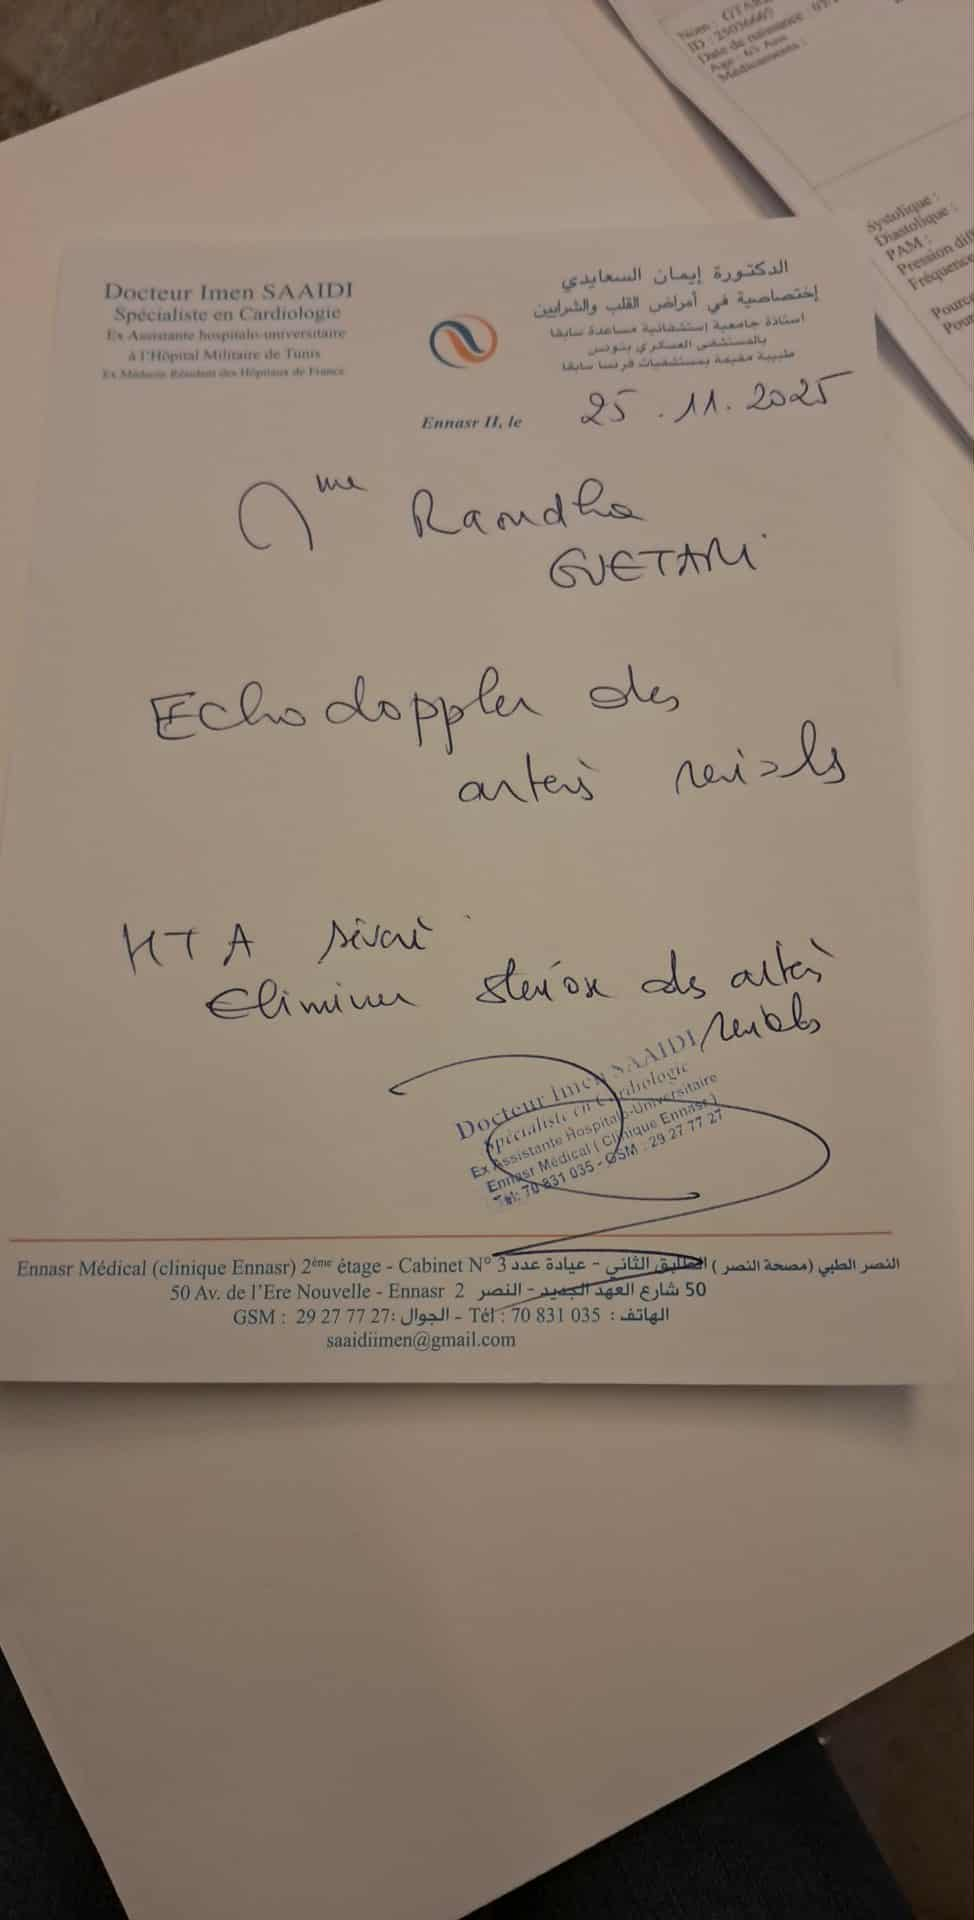 Nom : GTARI
ID : 25036605
Date de naissance : 07/
Age : 65 Ans
Médicaments :
Systolique :
Diastolique :
PAM :
Pression diff
Fréquence
Pource
Pour
Docteur Imen SAAIDI
Spécialiste en Cardiologie
Ex Assistante hospitalo-universitaire
à l'Hôpital Militaire de Tunis
Ex Médecin Résident des Hôpitaux de France
الدكتورة إيمان السعايدي
إختصاصية في أمراض القلب والشرايين
أستاذة جامعية إستشفائية مساعدة سابقا
بالمستشفى العسكري بتونس
طبيبة مقيمة بمستشفيات فرنسا سابقا
Ennasr II, le 25.11.2025
Mme Raoudha
GUETARI
Echodoppler des
artères rénales
HTA sévère
Eliminer sténose des artères
rénales
Docteur Imen SAAIDI
Spécialiste en Cardiologie
Ex Assistante Hospitalo-Universitaire
Ennasr Médical ( Clinique Ennasr )
Tél: 70 831 035 - GSM : 29 27 77 27
Ennasr Médical (clinique Ennasr) 2ème étage - Cabinet N° 3 النصر الطبي (مصحة النصر ) الطابق الثاني - عيادة عدد
50 Av. de l'Ere Nouvelle - Ennasr 2 50 شارع العهد الجديد - النصر
GSM : 29 27 77 27 :الجوال - Tél : 70 831 035 : الهاتف
saaidiimen@gmail.com